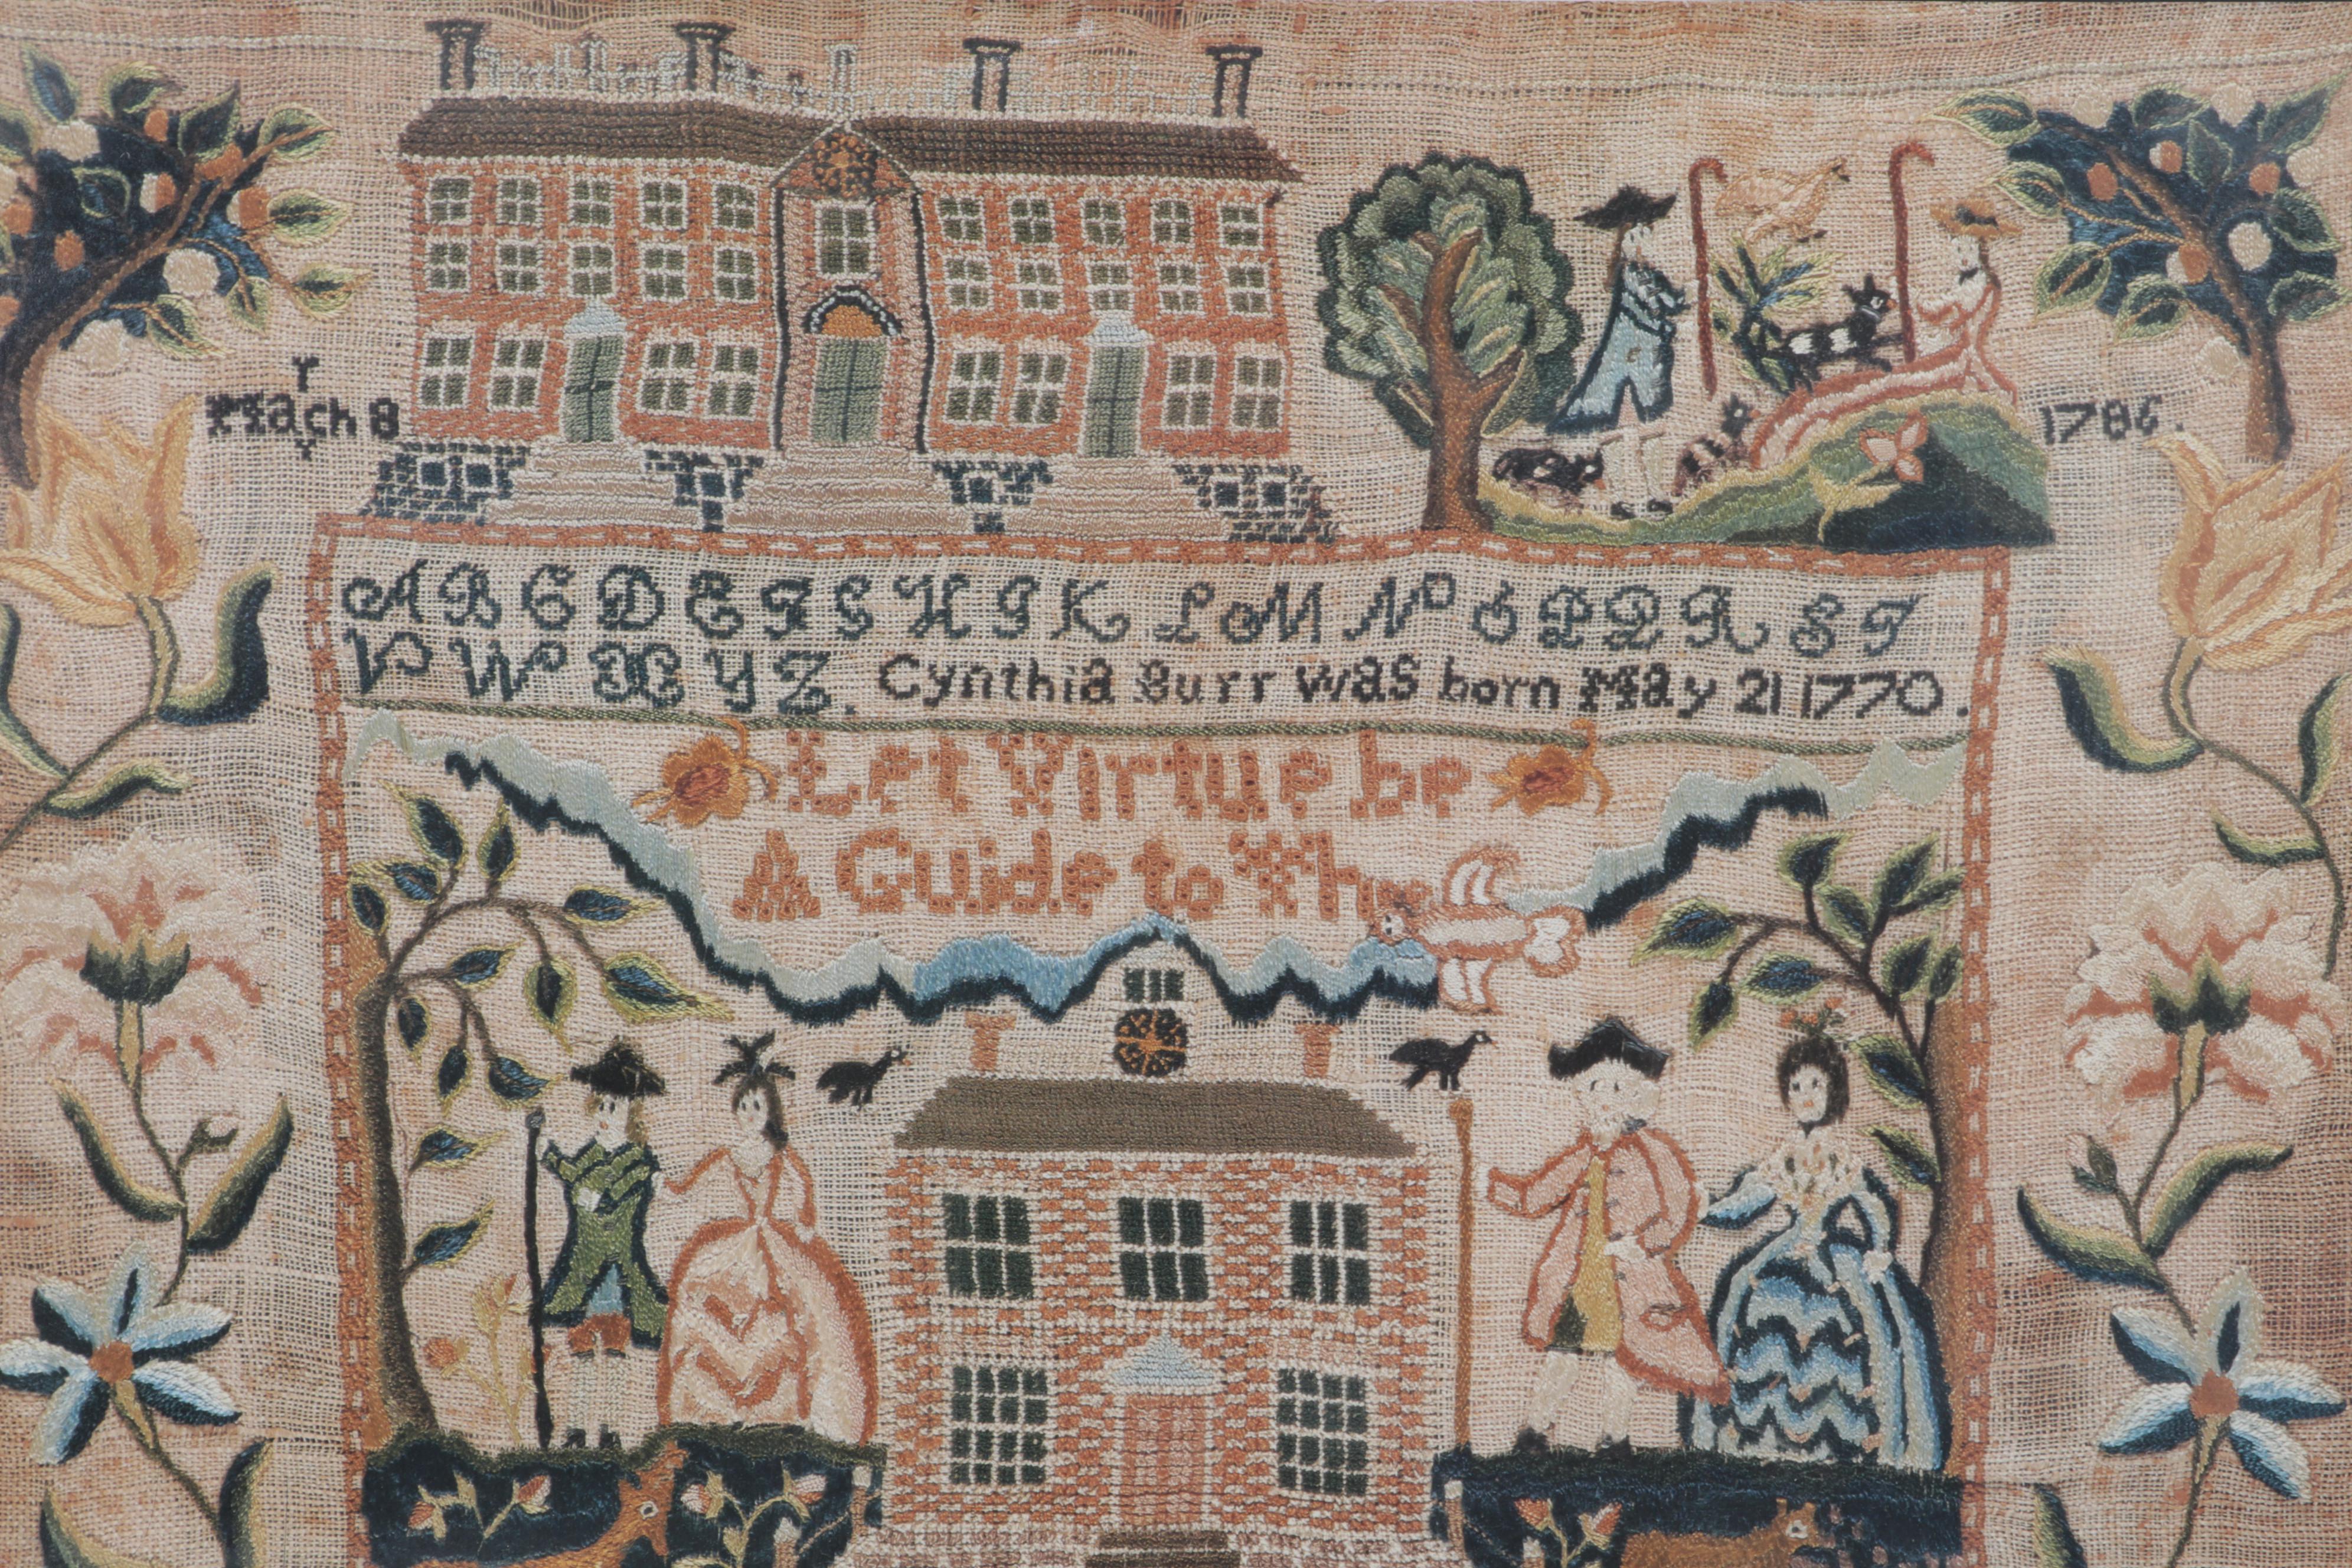 March 8
1786.
A B C D E F G H I K L M N O P Q R S T
V W X Y Z. Cynthia Burr was born May 21 1770.
Let Virtue be
A Guide to Thee